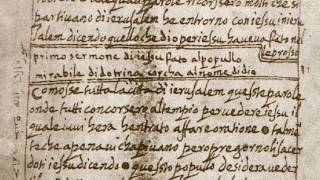 partivano di ierusalem he entorno con iesu in ieru
salem dicendo quello che dio per iesu haveva fato nel
leproso
primo sermone di iesu fato al populo
mirabile di dotrina circha al nome di dio
Comosse tutta la cita di ierusalem queste parole
onde tutti concorsero al tempio per vedere iesu il
quale iui hera hentrato affare oratione
te che apena ui chapivano pero pregorno li sacer
doti iesu dicendo questo populo desidera vede